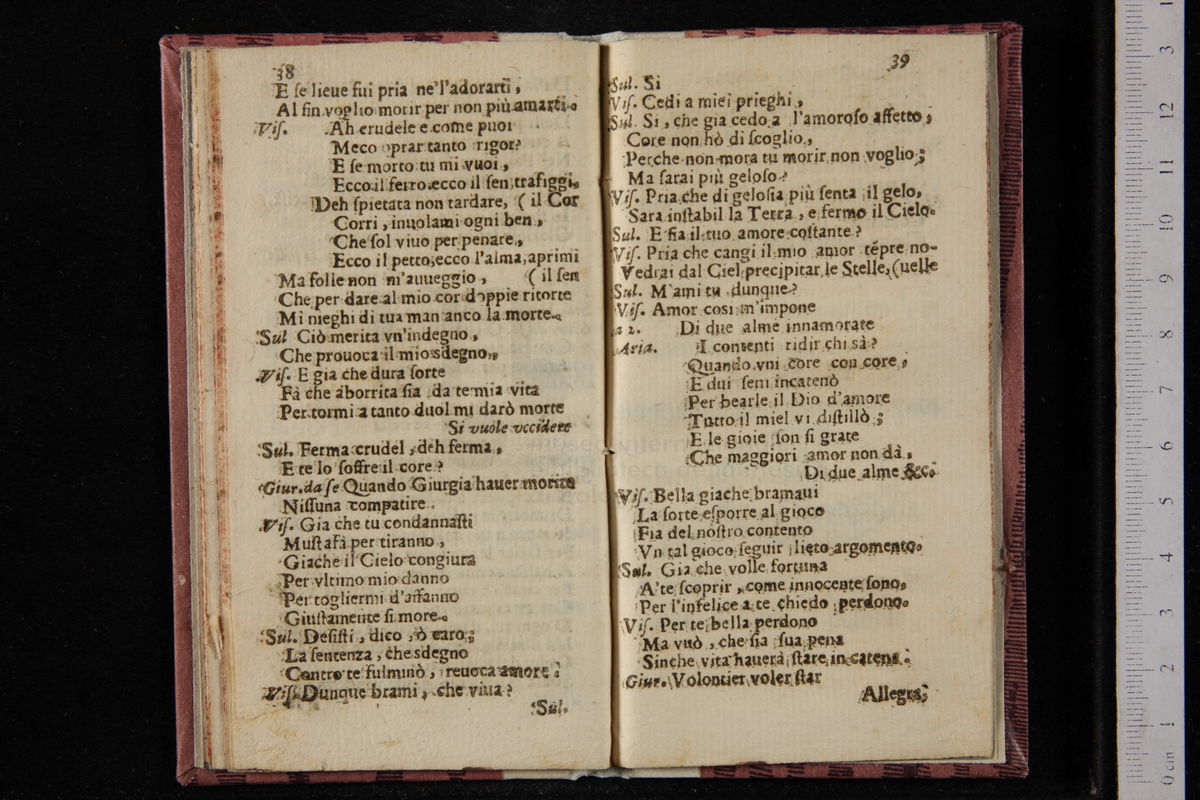 38
E ſe lieue fui pria ne'l'adorarti,
Al fin voglio morir per non più amarti.
Viſ. Ah crudele e come puoi
Meco oprar tanto rigor?
E ſe morto tu mi vuoi,
Ecco il ferro, ecco il ſen, trafiggi,
Deh ſpietata non tardare, ( il Cor
Corri, inuolami ogni ben,
Che ſol viuo per penare,
Ecco il petto, ecco l'alma, aprimi
Ma folle non m'auueggio, ( il ſen
Che per dare al mio cor doppie ritorte
Mi nieghi di tua man anco la morte.
Sul Ciò merita vn'indegno,
Che prouoca il mio sdegno,
Viſ. E gia che dura ſorte
Fà che aborrita ſia da te mia vita
Per tormi a tanto duol mi darò morte
Si vuole vccidere
Sul. Ferma crudel, deh ferma,
E te lo ſoffre il core?
Giur. da ſe Quando Giurgia hauer morire
Niſſuna compatire.
Viſ. Gia che tu condannaſti
Muſtafà per tiranno,
Giache il Cielo congiura
Per vltimo mio danno
Per togliermi d'affanno
Giuſtamente ſi more.
Sul. Deſiſti, dico, ò caro;
La ſentenza, che sdegno
Contro te fulminò, reuoca amore.
Viſ. Dunque brami, che viua?
Sul.
39
Sul. Si
Viſ. Cedi a miei prieghi,
Sul. Si, che gia cedo a l'amoroſo affetto,
Core non hò di ſcoglio,
Perche non mora tu morir non voglio;
Ma ſarai più geloſo?
Viſ. Pria che di geloſia più ſenta il gelo,
Sara inſtabil la Terra, e fermo il Cielo.
Sul. E fia il tuo amore coſtante?
Viſ. Pria che cangi il mio amor tẽpre no-
Vedrai dal Ciel precipitar le Stelle, (uelle
Sul. M'ami tu dunque?
Viſ. Amor cosi m'impone
a 2. Di due alme innamorate
Aria. I contenti ridir chi sà?
Quando vni core con core,
E dui ſeni incatenò
Per bearle il Dio d'amore
Tutto il miel vi diſtillò;
E le gioie ſon ſi grate
Che maggiori amor non dà,
Di due alme &c.
Viſ. Bella giache bramaui
La ſorte eſporre al gioco
Fia del noſtro contento
Vn tal gioco ſeguir lieto argomento.
Sul. Gia che volle fortuna
A' te ſcoprir, come innocente ſono,
Per l'infelice a te chiedo perdono.
Viſ. Per te bella perdono
Ma vuò, che ſia ſua pena
Sinche vita hauerà ſtare in catena.
Giur. Volontier voler ſtar
Allegra;